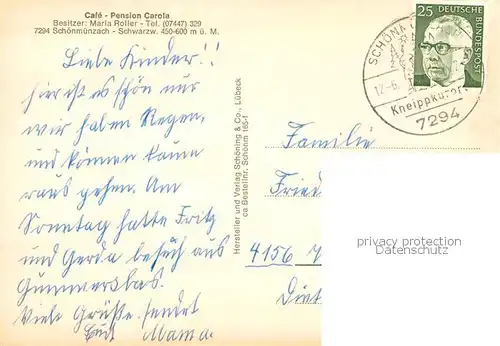 Café - Pension Carola
Besitzer: Maria Roller - Tel. (07447) 329
7294 Schönmünzach - Schwarzw. 450-600 m ü. M.
Liebe Kinder!!
hier ist es schön nur
wir haben Regen,
und können kaum
raus gehen. Am
Sonntag hatte Fritz
und Gerda besuch aus
Gummersbas.
Viele Grüße sendet
Mama.
Hersteller und Verlag Schöning & Co., Lübeck
ca Bestellnr. Schönm 165-f
25
DEUTSCHE
BUNDESPOST
SCHÖNM
12.-6.
Kneippkuror
7294
Familie
Fried
4156
privacy protection
Datenschutz